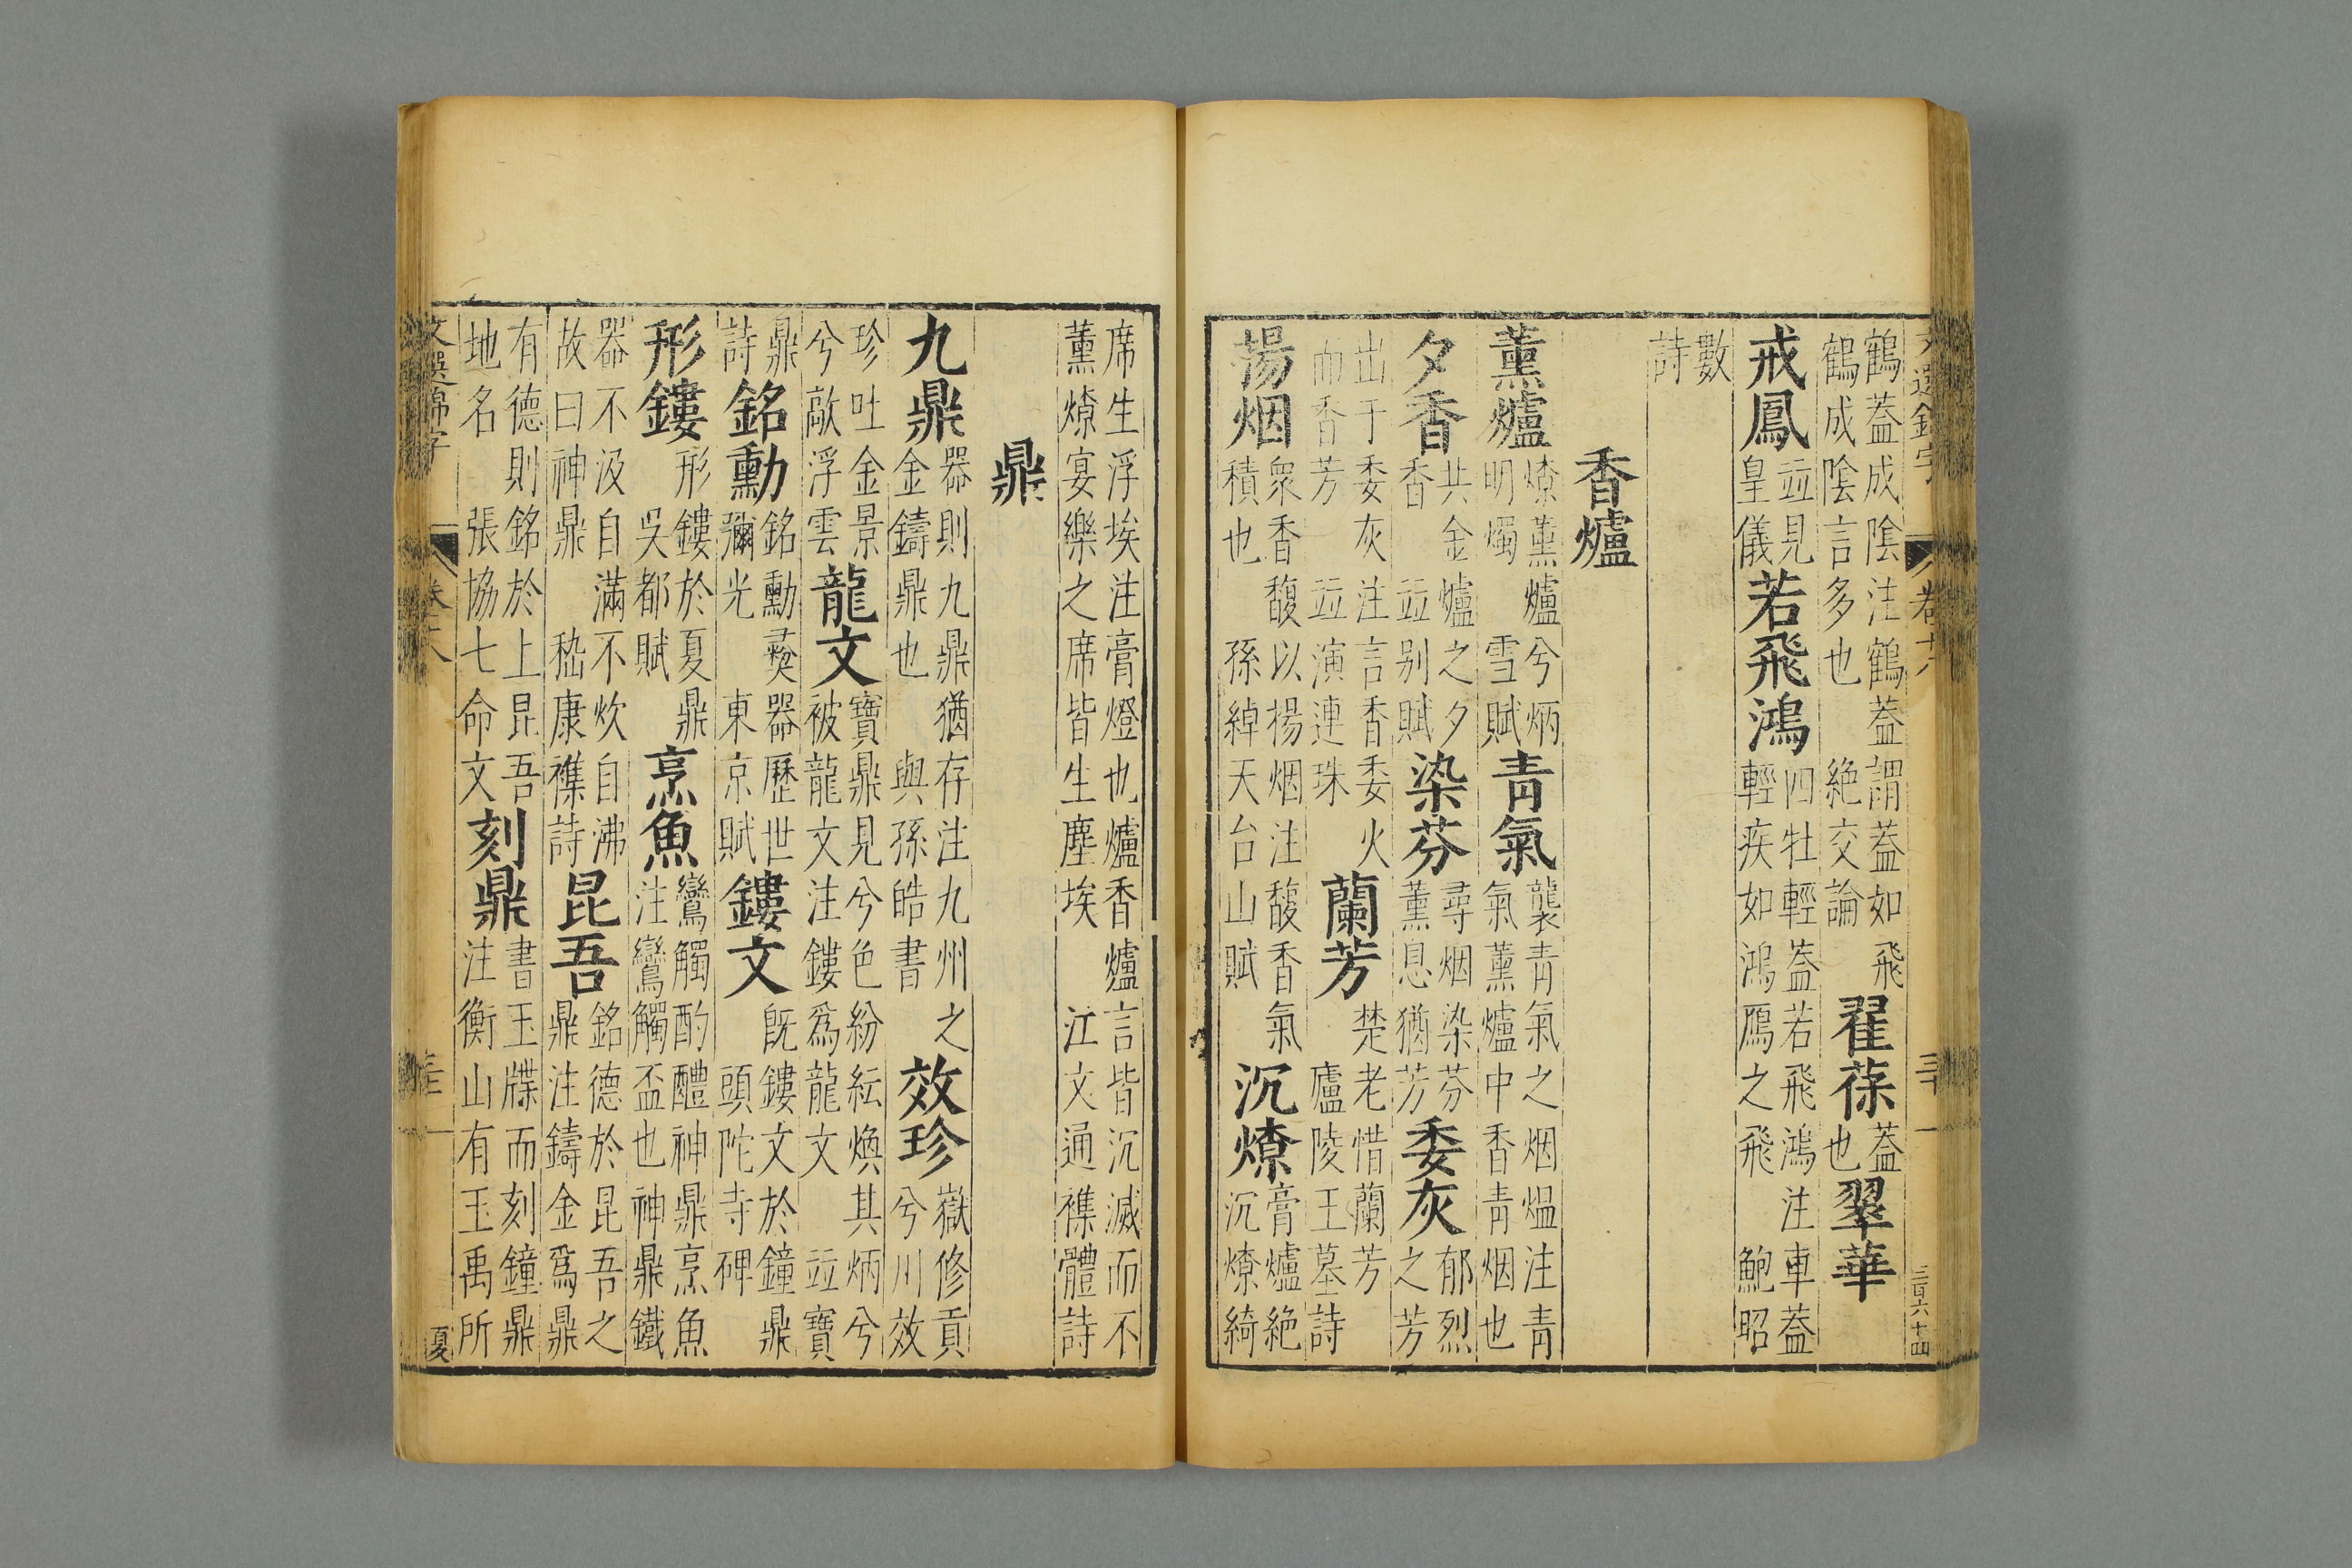 鶴蓋成陰注鶴蓋謂蓋如飛
鶴成陰言多也　絶交論
翟葆
蓋
也
翠華
戒鳳
竝見
皇儀
若飛鴻
四牡輕蓋若飛鴻注車蓋
輕疾如鴻鴈之飛　鮑昭
數
詩
香爐
薰爐
燎薰爐兮炳
明燭　雪賦
青氣
襲青氣之烟熅注青
氣薰爐中香青烟也
夕香
共金爐之夕
香　竝别賦
染芬
尋烟染芬
薰息猶芳
委灰
郁烈
之芳
出于委灰注言香委火
而香芳　竝演連珠
蘭芳
楚老惜蘭芳
廬陵王墓詩
揚烟
衆香馥以揚烟注馥香氣
積也　孫綽天台山賦
沉燎
膏爐絶
沉燎綺
席生浮埃注膏燈也爐香爐言皆沉滅而不
薰燎宴樂之席皆生塵埃　江文通襍體詩
鼎
九鼎
器則九鼎猶存注九州之
金鑄鼎也　與孫皓書
效珍
嶽修貢
兮川效
珍吐金景兮色紛紜煥其炳兮
兮歊浮雲
龍文
寶鼎見兮色紛紜煥其炳兮
被龍文注鏤爲龍文　竝寶
鼎
詩
銘勳
銘勳彛器歷世
彌光　東京賦
鏤文
既鏤文於鐘鼎
頭陀寺碑
形鏤
形鏤於夏鼎
吳都賦
烹魚
鸞觴酌醴神鼎烹魚
注鸞觴盃也神鼎鐵
器不汲自滿不炊自沸
故曰神鼎　嵇康襍詩
昆吾
銘德於昆吾之
鼎注鑄金爲鼎
有德則銘於上昆吾
地名　張協七命文
刻鼎
書玉牒而刻鐘鼎
注衡山有玉禹所
文選錦字
卷十八
三百六十四
夏